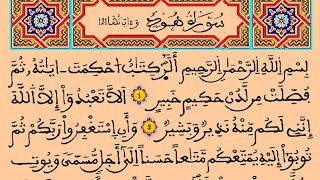 سُورَةُ هُودٍ
بِسْمِ اِللَّهِ اِلرَّحْمَٰنِ اِلرَّحِيمِ أَلَٓرۖ كِتَٰبٌ احْكِمَتَ اٰيَٰتُهُۥ ثُمَّ
فُصِّلَتْ مِن لَّدُنْ حَكِيمٍ خَبِيرٍ ١ اَلَّا تَعْبُدُوٓاْ إِلَّا اَللَّهَ
إِنَّنِے لَكُم مِّنْهُ نَذِيرٌ وَبَشِيرٌ ٢ وَأَنِ اِسْتَغْفِرُواْ رَبَّكُمْ ثُمَّ
تُوبُوٓاْ إِلَيْهِ يُمَتِّعْكُم مَّتَٰعًا حَسَنًا اِلَىٰٓ أَجَلٖ مُّسَمّٗى وَيُوتِ